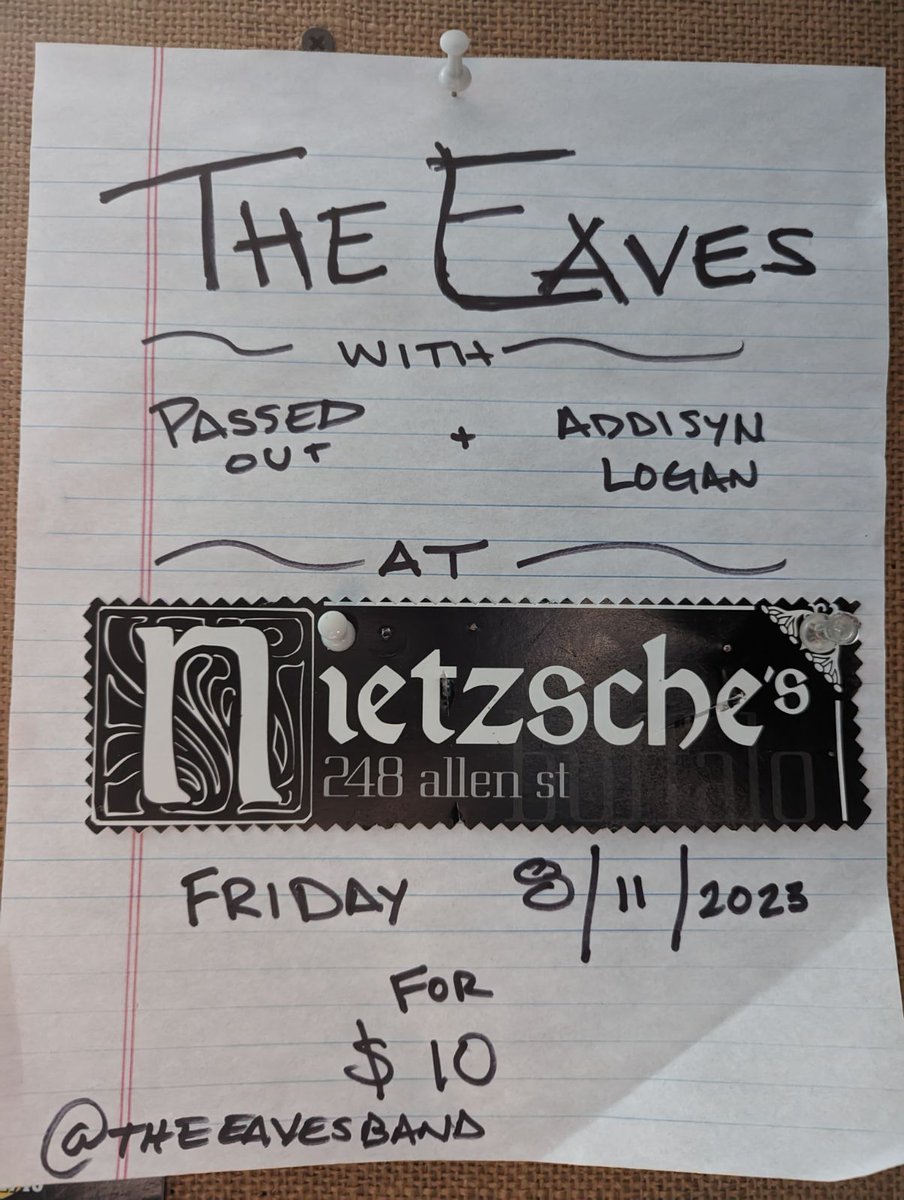 THE EAVES
WITH
PASSED + ADDISYN
OUT LOGAN
AT
Nietzsche's
248 allen st
buffalo
FRIDAY 8/11/2023
FOR
$10
@THEEAVESBAND